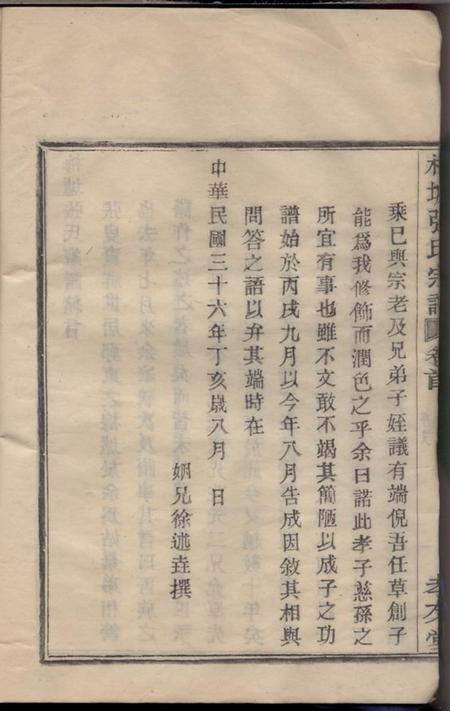 張氏宗譜 卷首
乘已與宗老及兄弟子姪議有端倪吾任草創子
能爲我修飾而潤色之乎余曰諾此孝子慈孫之
所宜有事也雖不文敢不竭其簡陋以成子之功
譜始於丙戌九月以今年八月告成因敘其相與
問答之語以弁其端時在
中華民國三十六年丁亥歲八月 日
姻兄徐述垚撰